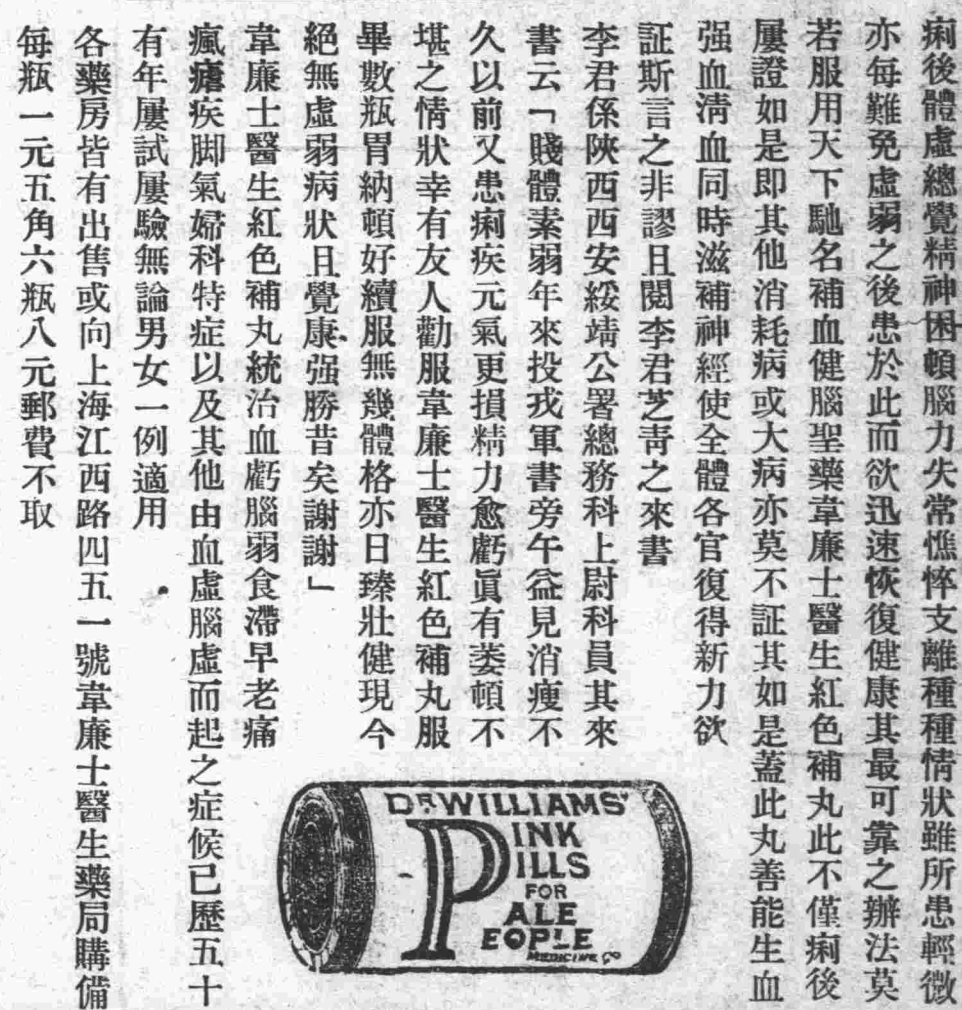 痢後體虛總覺精神困頓腦力失常憔悴支離種種情狀雖所患輕微
亦每難免虛弱之後患於此而欲迅速恢復健康其最可靠之辦法莫
若服用天下馳名補血健腦聖藥韋廉士醫生紅色補丸此不僅痢後
屢證如是即其他消耗病或大病亦莫不証其如是蓋此丸善能生血
强血淸血同時滋補神經使全體各官復得新力欲
証斯言之非謬且閱李君芝靑之來書
李君係陝西西安綏靖公署總務科上尉科員其來
書云「賤體素弱年來投戎軍書旁午益見消瘦不
久以前又患痢疾元氣更損精力愈虧眞有萎頓不
堪之情狀幸有友人勸服韋廉士醫生紅色補丸服
畢數瓶胃納頓好續服無幾體格亦日臻壯健現今
絕無虛弱病狀且覺康强勝昔矣謝謝」
韋廉士醫生紅色補丸統治血虧腦弱食滯早老痛
瘋瘧疾脚氣婦科特症以及其他由血虛腦虛而起之症候已歷五十
有年屢試屢驗無論男女一例適用
各藥房皆有出售或向上海江西路四五一號韋廉士醫生藥局購備
每瓶一元五角六瓶八元郵費不取
DR WILLIAMS'
PINK
PILLS
FOR
PALE
PEOPLE
MEDICINE CO